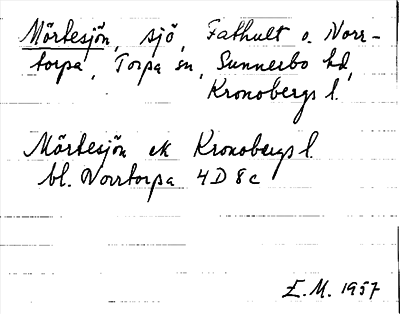 Mörtesjön, sjö, Fathult o. Norr-
torpa, Torpa sn, Sunnerbo hd,
Kronobergs l.
Mörtesjön ek Kronobergs l.
bl. Norrtorpa 4D 8c
E.M. 1957